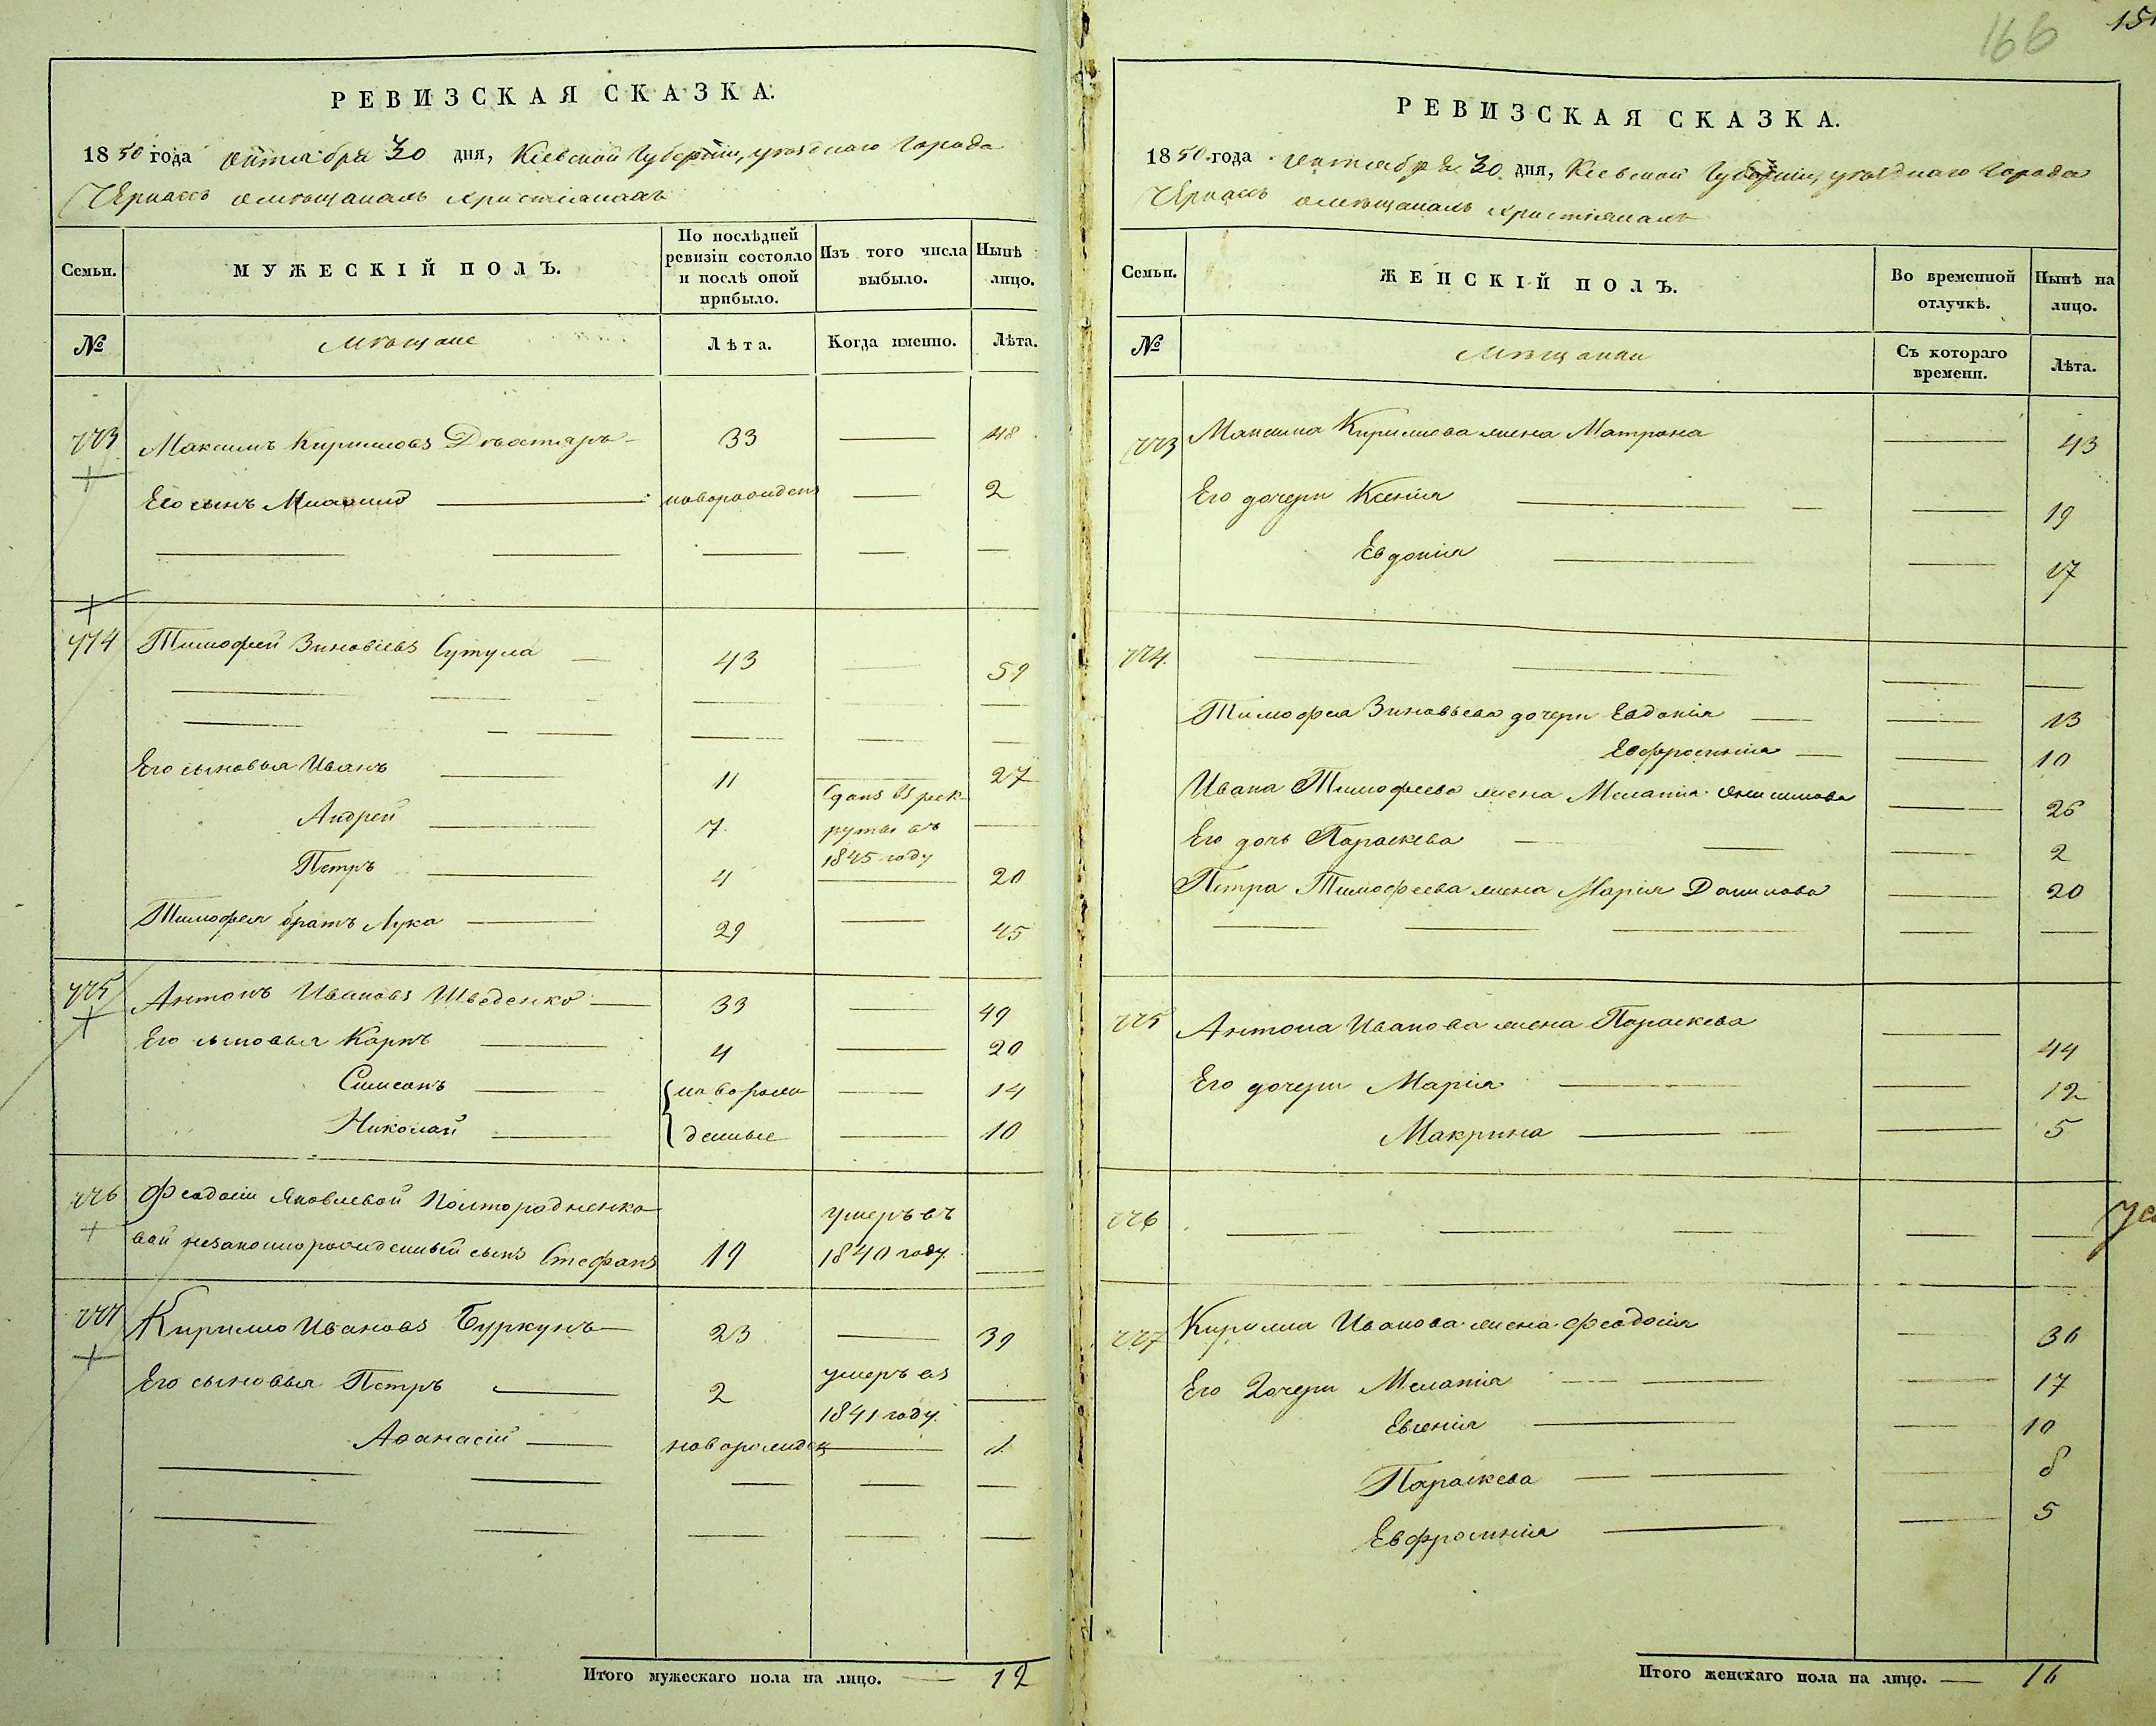 166
151
РЕВИЗСКАЯ СКАЗКА.
1850 года октября 30 дня, Кіевской Губерніи, уѣзднаго города
Черкасъ о мѣщанахъ христіанахъ
Семьи.
МУЖЕСКІЙ ПОЛЪ.
По послѣдней ревизіи состояло и послѣ оной прибыло.
Изъ того числа выбыло.
Нынѣ лицо.
№
Мѣщане
Лѣта.
Когда именно.
Лѣта.
773 Максимъ Кириловъ — 33 — 48
Его сынъ — новорожденъ — 2
774 Тимофей Зиновіевъ Сутула — 43 — 59
Его сыновья Иванъ — 11 — 27
Андрей — 7 Сданъ въ рек-
руты въ
1845 году —
Петръ — 4 — 20
Тимофея братъ Лука — 29 — 45
775 Антонъ Ивановъ Шведенко — 33 — 49
Его сыновья Карпъ — 4 — 20
Симеонъ — новорож — 14
Николай — денные — 10
776 Феодосіи Яковлевой Полторадненко- умеръ въ
вой незаконнорожденный сынъ Стефанъ 19 1840 году —
777 Кирилло Ивановъ Буркунъ — 23 — 39
Его сыновья Петръ — 2 умеръ въ
1841 году. —
Аѳанасій — новорожден — 1
Итого мужескаго пола на лицо. — 12
РЕВИЗСКАЯ СКАЗКА.
1850 года октября 30 дня, Кіевской Губерніи, уѣзднаго города
Черкасъ о мѣщанахъ христіанахъ
Семьи.
ЖЕНСКІЙ ПОЛЪ.
Во временной отлучкѣ.
Нынѣ на лицо.
№
Мѣщанки
Съ котораго времени.
Лѣта.
773 Максима Кирилова жена Матрона — 43
Его дочери Ксенія — 19
Евдокія — 17
774.
Тимофея Зиновьева дочери Евдокія — 13
Евфросинія — 10
Ивана Тимофеева жена Меланія Онисимова — 26
Его дочь Параскева — 2
Петра Тимофеева жена Марія Данилова — 20
775 Антона Иванова жена Параскева — 44
Его дочери Марія — 12
Макрина — 5
776
777 Кирилла Иванова жена Феодосія — 36
Его дочери Меланія — 17
Евгенія — 10
Параскева — 8
Евфросинія — 5
Итого женскаго пола на лицо. — 16